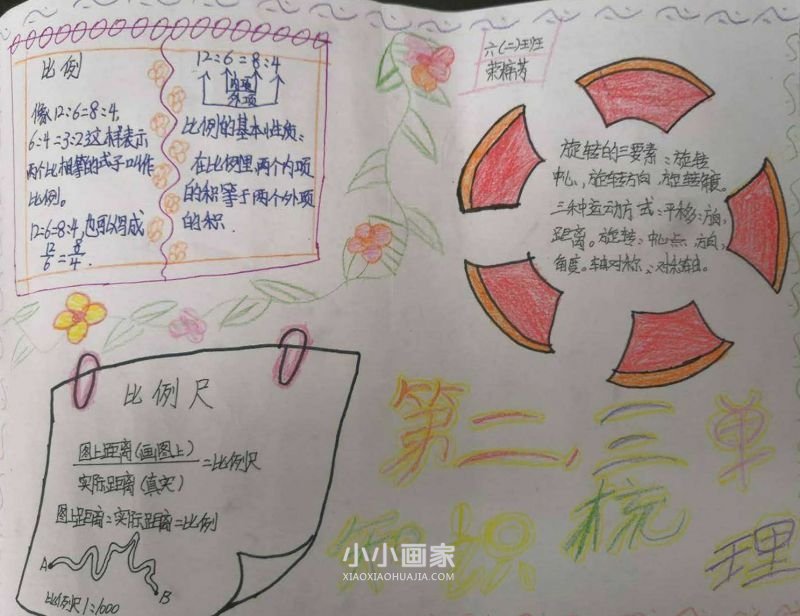 比例
像12:6=8:4,
6:4=3:2这样表示
两个比相等的式子叫作
比例。
12:6=8:4,也可以写成
12/6=8/4.
12:6=8:4
内项
外项
比例的基本性质:
在比例里,两个内项
的积等于两个外项
的积.
六(二)班
旋转的三要素:旋转
中心,旋转方向,旋转角度。
三种运动方式:平移:方向,
距离。旋转:中心点、方向,
角度。轴对称:对称轴。
比例尺
图上距离(画图上)
实际距离(真实)
=比例尺
图上距离:实际距离=比例
A
B
比例尺1:1000
第二,三单
知识梳理
小小画家
XIAOXIAOHUAJIA.COM